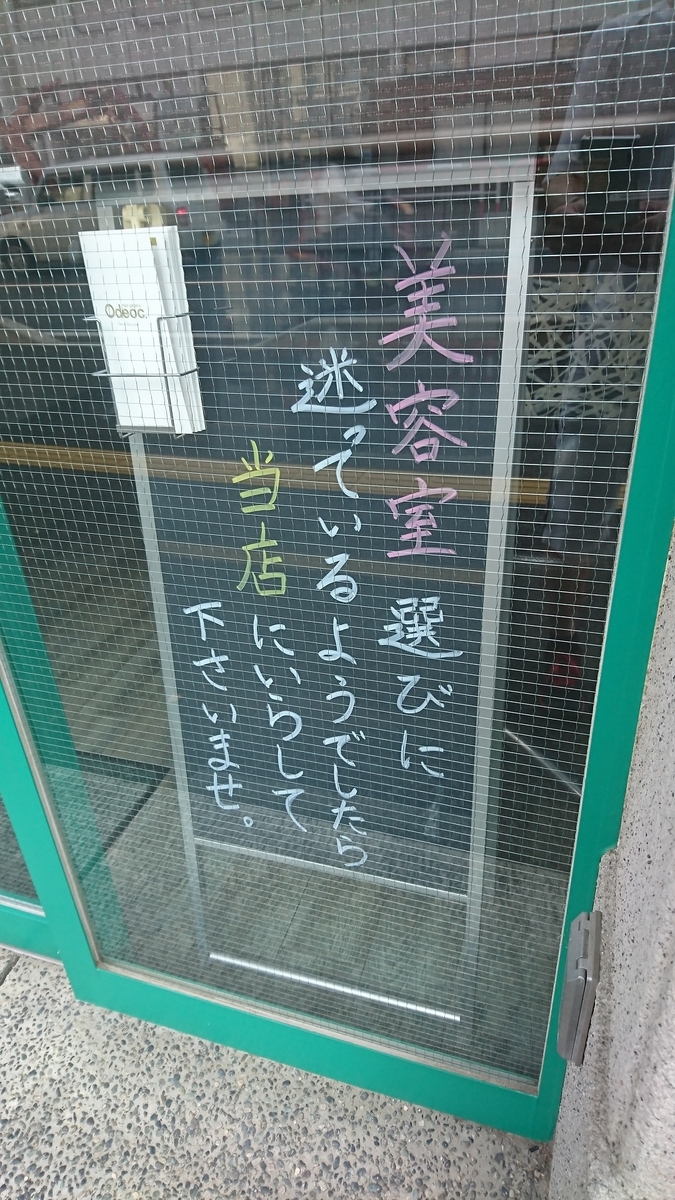 美容室選びに
迷っているようでしたら
当店にいらして
下さいませ。
Odeoc.